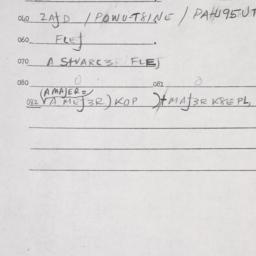 040 2AJD / POWUT8INE / PAHU95UT
060 FLEJ
070 A SHVARC3: FLEJ
080 0 081 0
(AMAJER=
082 (A MEJ3R) KOP )+ MAJ3R K8EPL